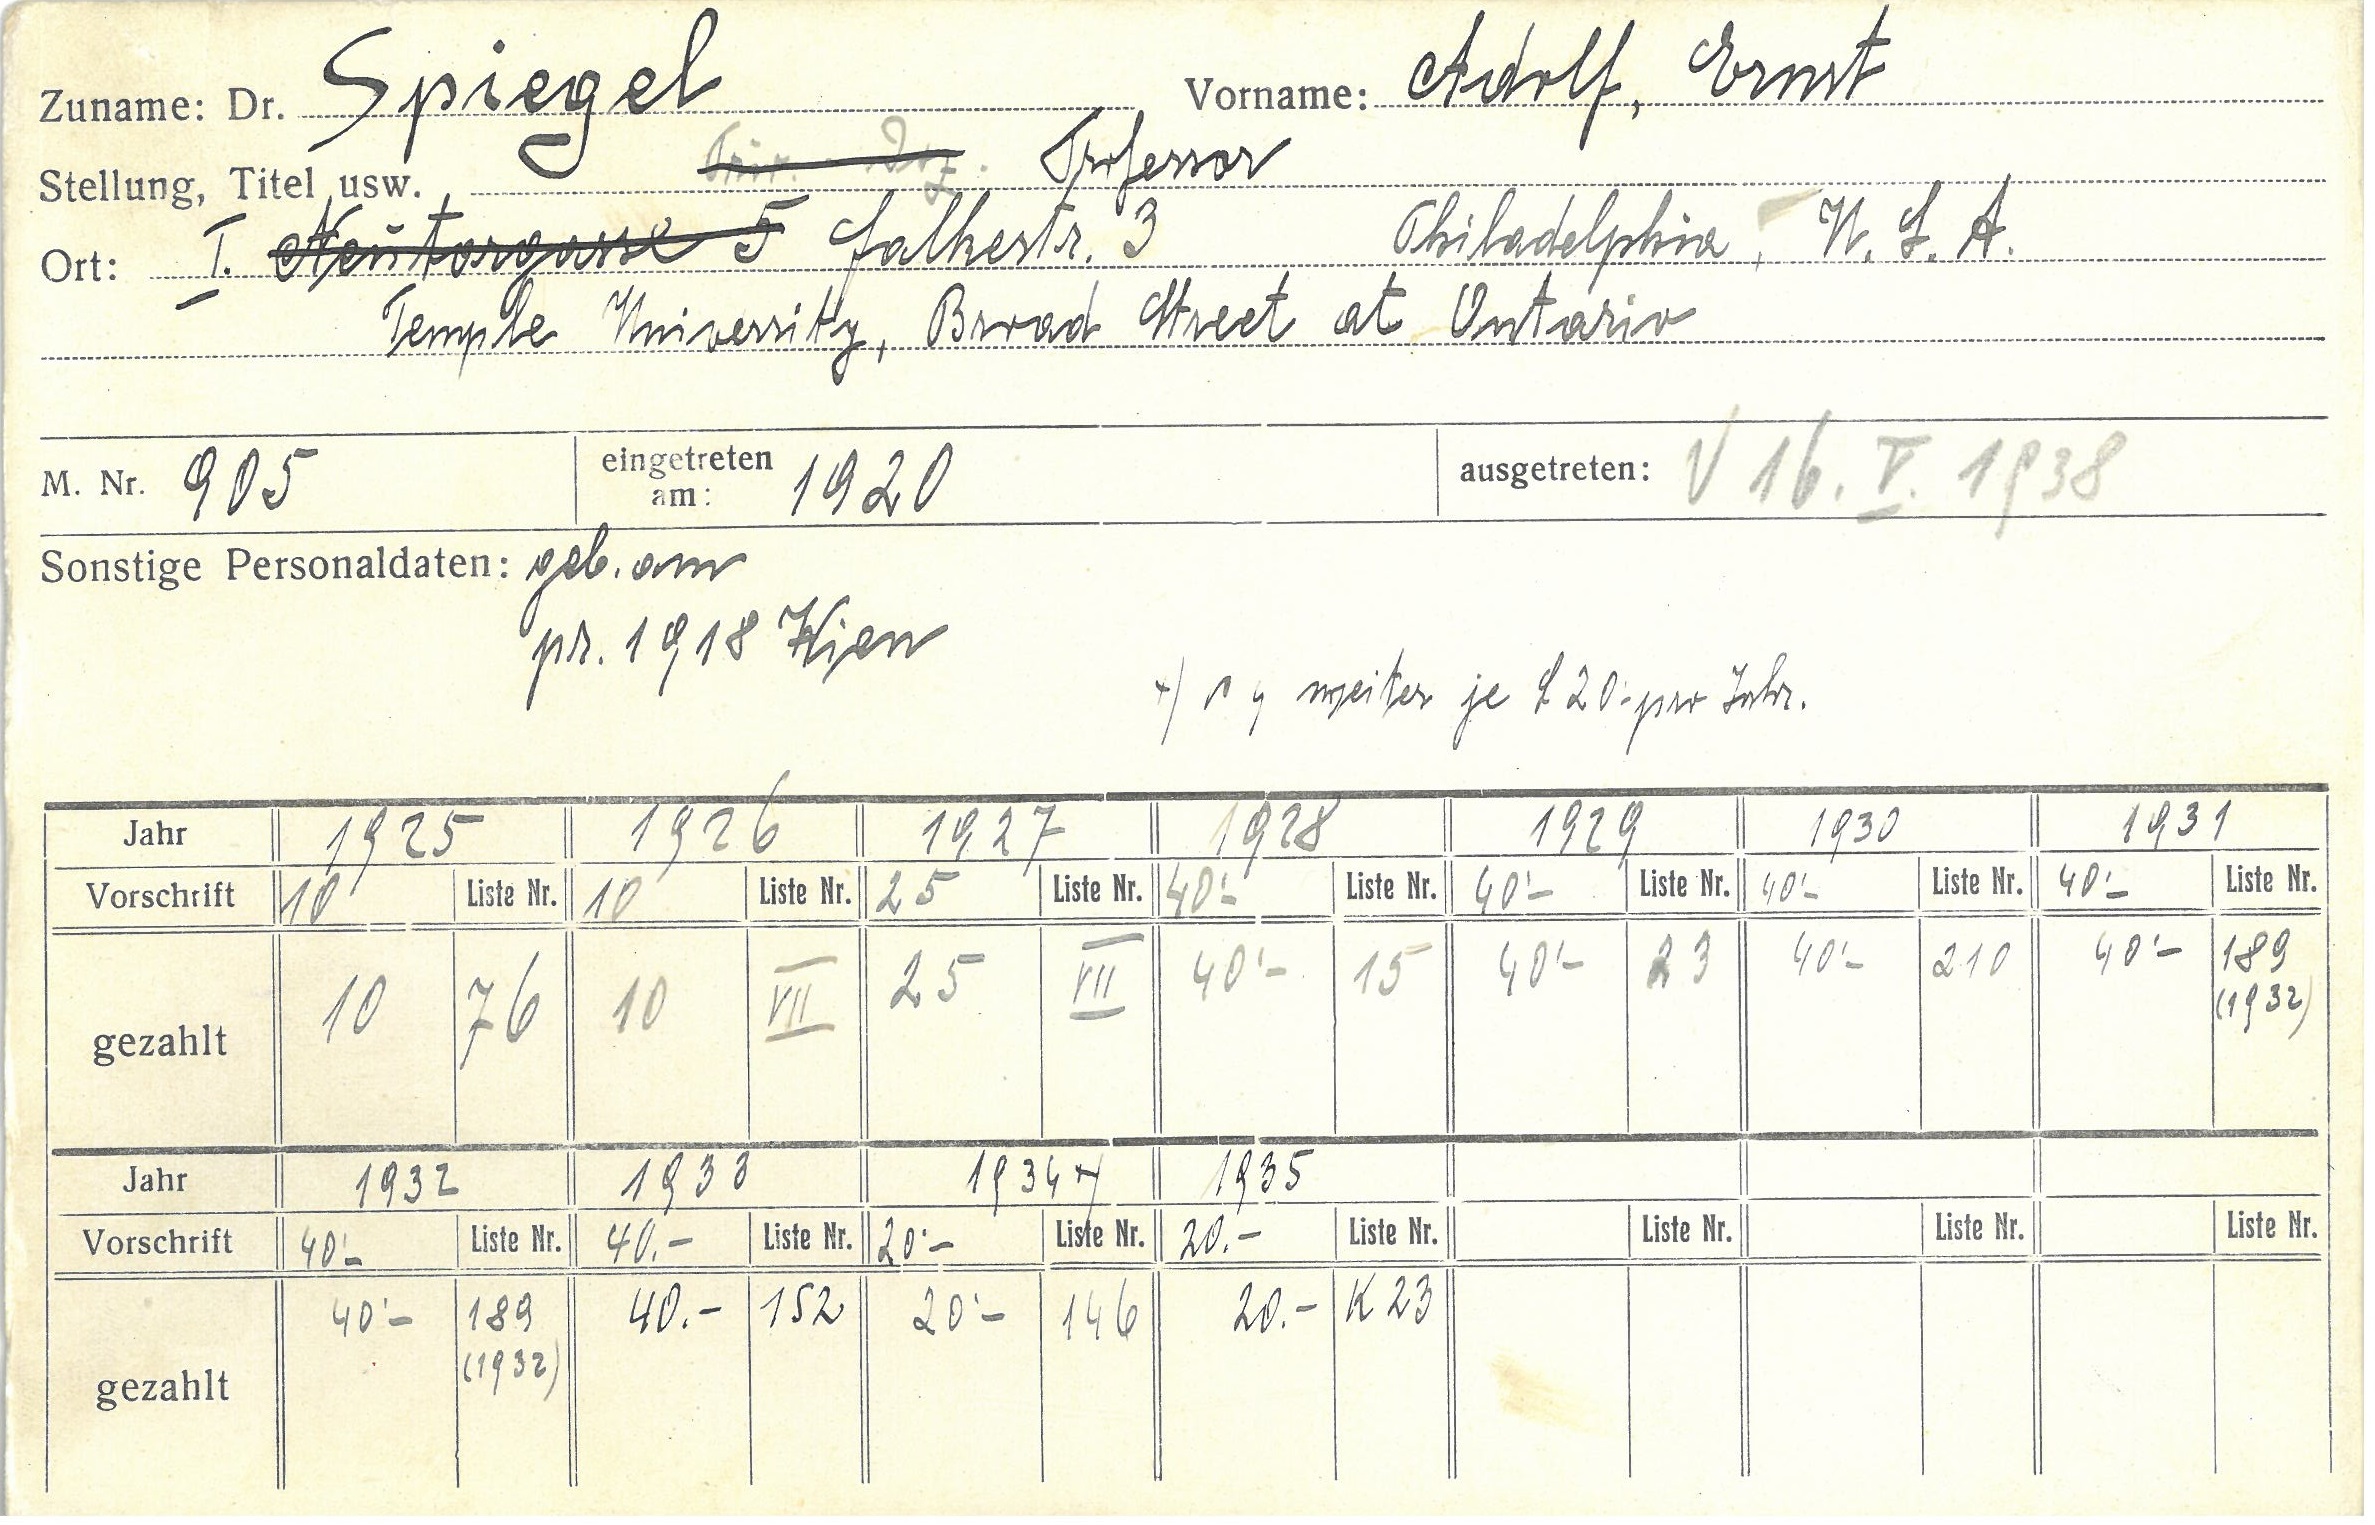 Zuname: Dr. Spiegel Vorname: Adolf, Ernst
Stellung, Titel usw. Priv. Doz. Professor
Ort: I. Neutorgasse 5 Falkestr. 3 Philadelphia, U. S. A.
Temple University, Broad Street at Ontario
M. Nr. 905 eingetreten am: 1920 ausgetreten: V 16. V. 1938
Sonstige Personaldaten: geb. am
pr. 1918 Wien
+) weiter je S 20.- pro Jahr.
Jahr 1925 1926 1927 1928 1929 1930 1931
Vorschrift 10 Liste Nr. 10 Liste Nr. 25 Liste Nr. 40'- Liste Nr. 40'- Liste Nr. 40'- Liste Nr. 40'- Liste Nr.
gezahlt 10 76 10 VII 25 VII 40'- 15 40'- 23 40'- 210 40'- 189
(1932)
Jahr 1932 1933 1934 +) 1935
Vorschrift 40'- Liste Nr. 40.- Liste Nr. 20'- Liste Nr. 20.- Liste Nr. Liste Nr. Liste Nr. Liste Nr.
gezahlt 40'- 189 40.- 152 20'- 146 20.- K 23
(1932)